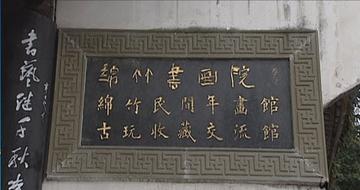 綿竹書画院
綿竹民間年畫館
古玩收藏交流館
書藝注千秋